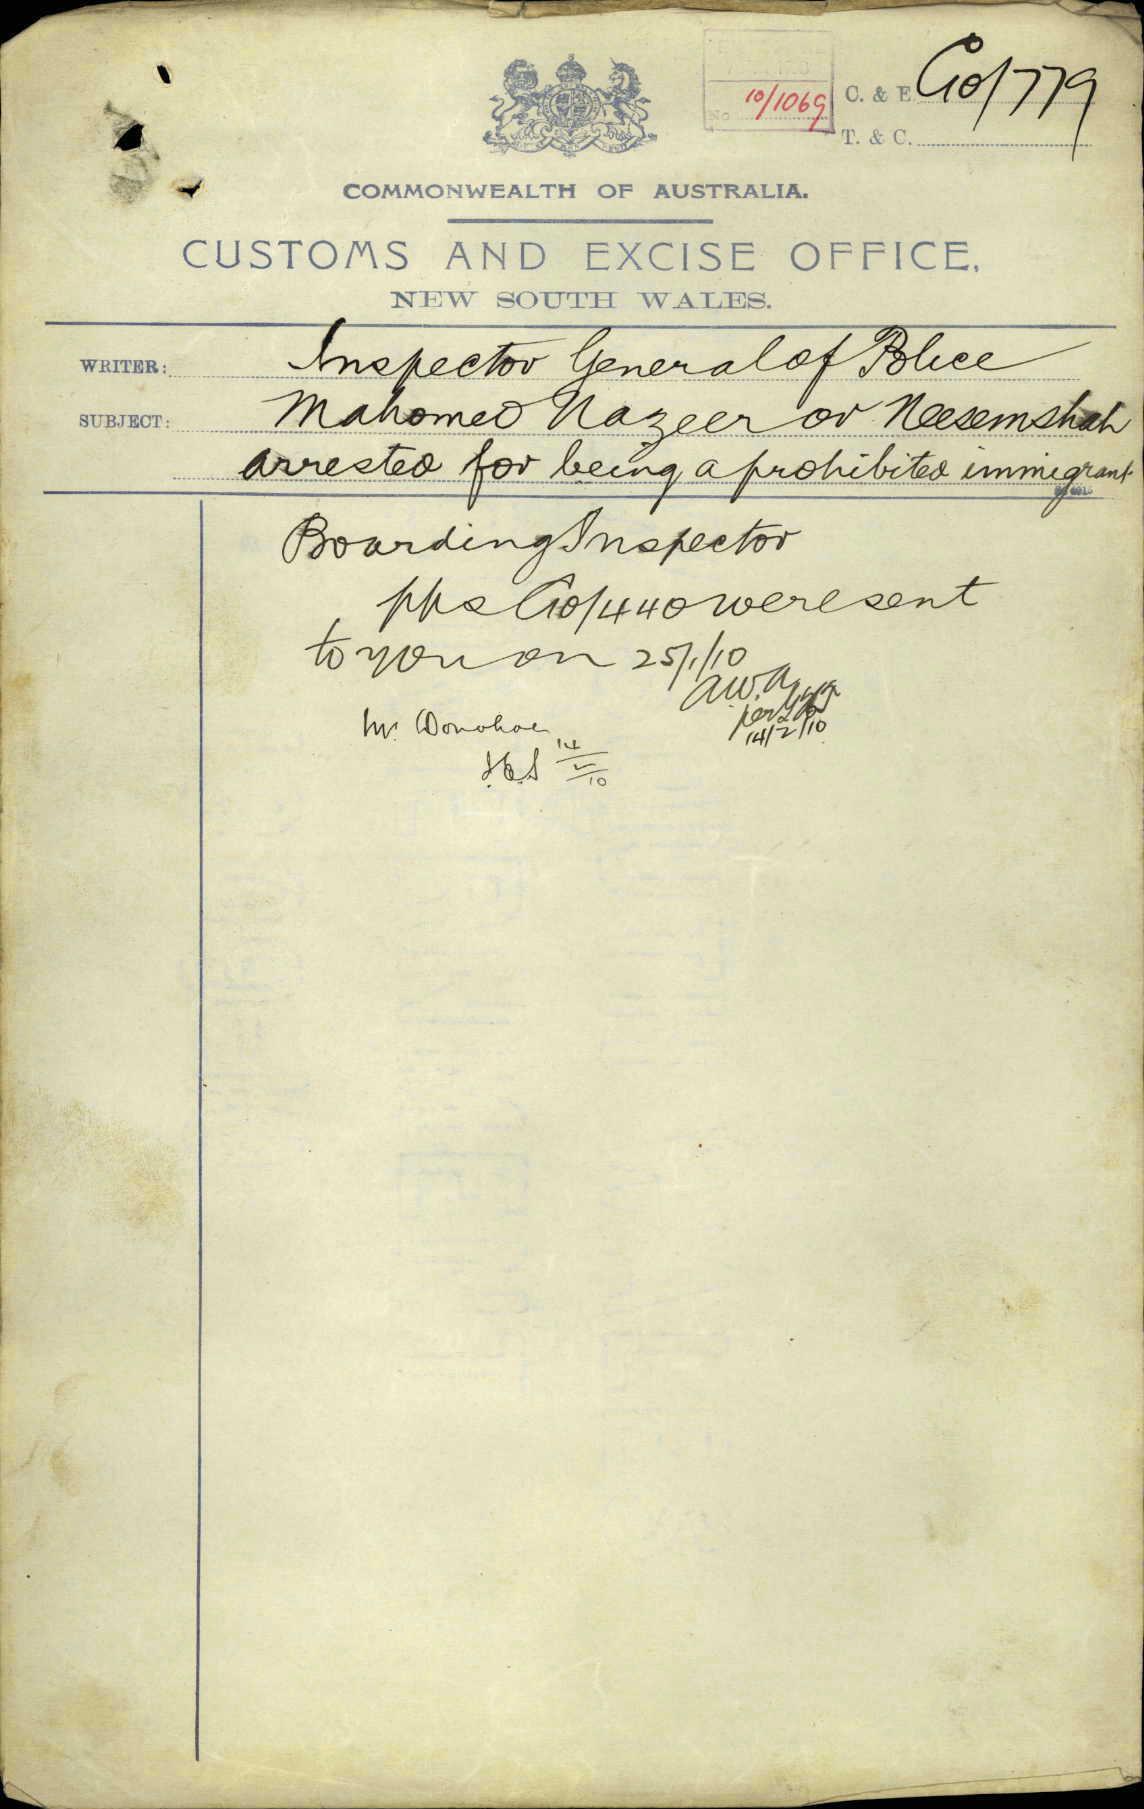 10/1069
C. & E. G10/779
T. & C.
COMMONWEALTH OF AUSTRALIA.
CUSTOMS AND EXCISE OFFICE,
NEW SOUTH WALES.
WRITER: Inspector General of Police
SUBJECT: Mahomed Nazeer or Neesemshah
arrested for being a prohibited immigrant
Boarding Inspector
pps G10/440 were sent
to you on 25/1/10
A.W.A.
per
14/2/10
Mr. Donohoe
14/2/10